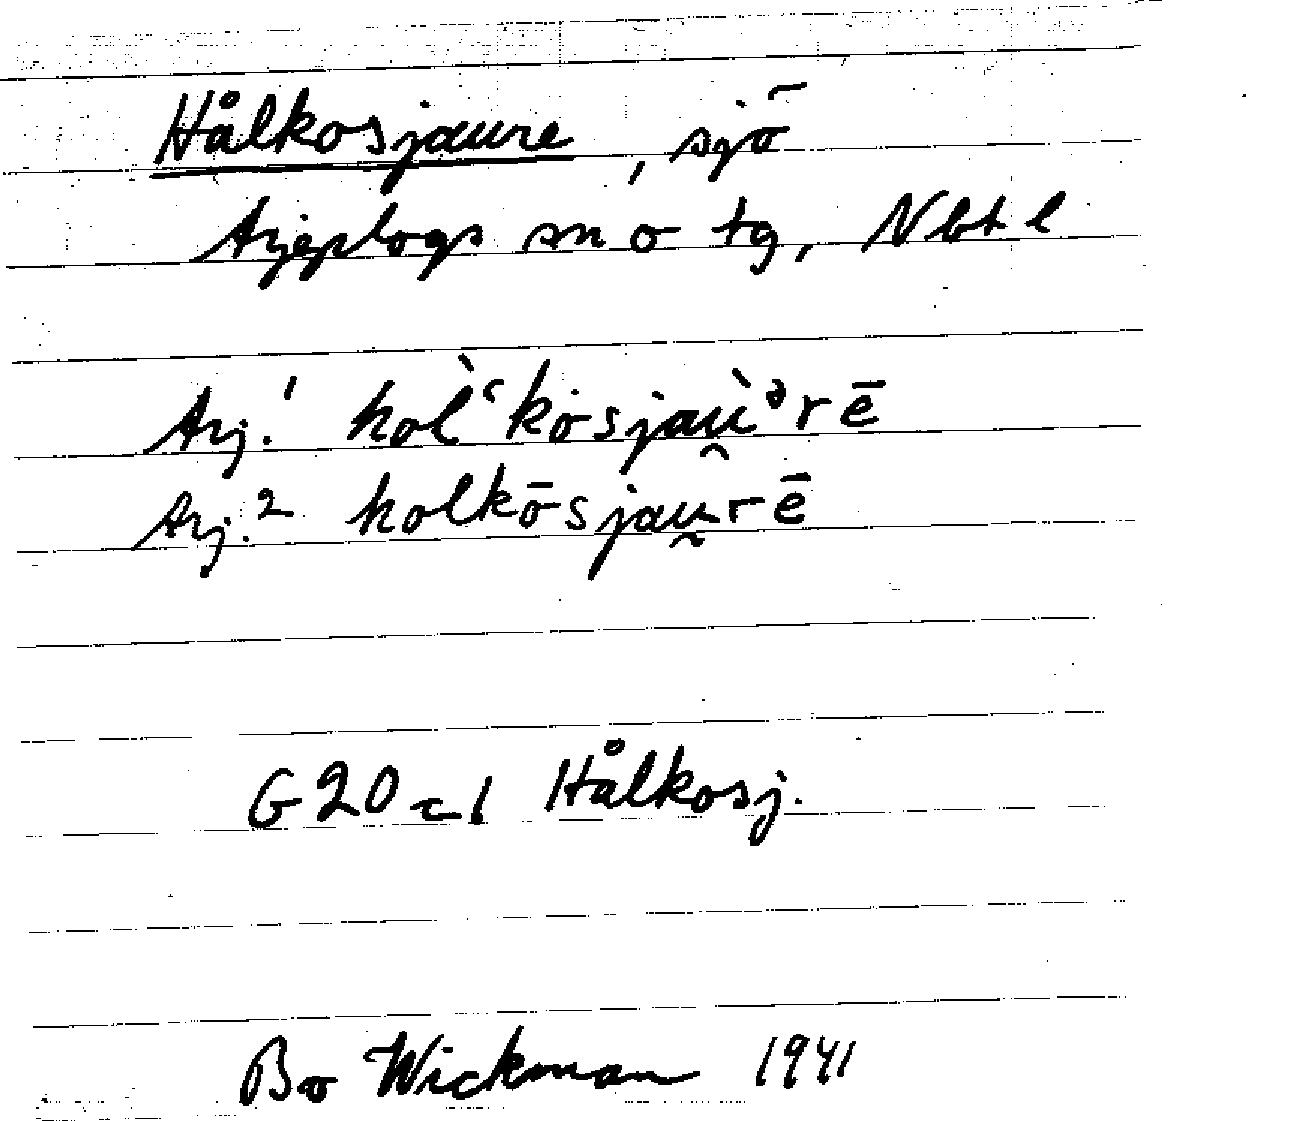 Hålkosjaure, sjö
Arjeplogs sn o tg, Nbt l
Arj.¹ hol̀ʿkosjaù̯ᵊrē
Arj.² holkōsjau̯rē
G20 = 1 Hålkosj.
Bo Wickman 1941